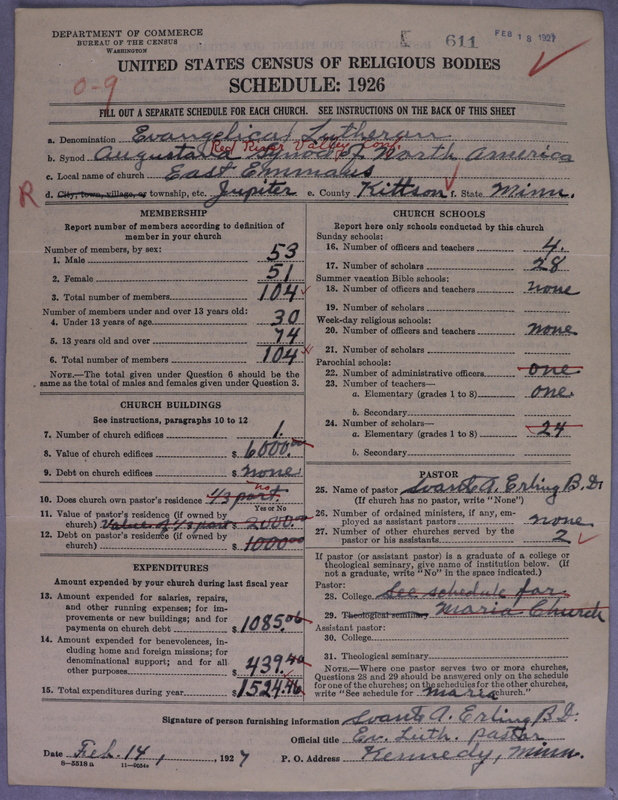 DEPARTMENT OF COMMERCE
BUREAU OF THE CENSUS
WASHINGTON
E 611 FEB 18 1927
UNITED STATES CENSUS OF RELIGIOUS BODIES
0-9
SCHEDULE: 1926
FILL OUT A SEPARATE SCHEDULE FOR EACH CHURCH. SEE INSTRUCTIONS ON THE BACK OF THIS SHEET
a. Denomination Evangelical Lutheran
Red River Valley Conf.
b. Synod Augustana Synod of North America
c. Local name of church East Emmaus
R d. City, town, village, or township, etc. Jupiter e. County Kittson f. State Minn.
MEMBERSHIP
Report number of members according to definition of member in your church
Number of members, by sex:
1. Male 53
2. Female 51
3. Total number of members 104
Number of members under and over 13 years old:
4. Under 13 years of age 30
5. 13 years old and over 74
6. Total number of members 104
NOTE.—The total given under Question 6 should be the same as the total of males and females given under Question 3.
CHURCH BUILDINGS
See instructions, paragraphs 10 to 12
7. Number of church edifices 1.
8. Value of church edifices $ 6000.00
9. Debt on church edifices $ none
no
10. Does church own pastor's residence 1/3 part.
Yes or No
11. Value of pastor's residence (if owned by church) Value of 1/3 part $ 2000.00
12. Debt on pastor's residence (if owned by church) $ 1000.00
EXPENDITURES
Amount expended by your church during last fiscal year
13. Amount expended for salaries, repairs, and other running expenses; for improvements or new buildings; and for payments on church debt $ 1085.06
14. Amount expended for benevolences, including home and foreign missions; for denominational support; and for all other purposes $ 439.40
15. Total expenditures during year $ 1524.46
CHURCH SCHOOLS
Report here only schools conducted by this church
Sunday schools:
16. Number of officers and teachers 4.
17. Number of scholars 28
Summer vacation Bible schools:
18. Number of officers and teachers none
19. Number of scholars
Week-day religious schools:
20. Number of officers and teachers none
21. Number of scholars
Parochial schools:
22. Number of administrative officers one
23. Number of teachers—
a. Elementary (grades 1 to 8) one.
b. Secondary
24. Number of scholars—
a. Elementary (grades 1 to 8) 24
b. Secondary
PASTOR
25. Name of pastor Svante A. Erling B.D.
(If church has no pastor, write "None")
26. Number of ordained ministers, if any, employed as assistant pastors none
27. Number of other churches served by the pastor or his assistants 2
If pastor (or assistant pastor) is a graduate of a college or theological seminary, give name of institution below. (If not a graduate, write "No" in the space indicated.)
Pastor:
28. College See schedule for
29. Theological seminary Maria Church
Assistant pastor:
30. College
31. Theological seminary
NOTE.—Where one pastor serves two or more churches, Questions 28 and 29 should be answered only on the schedule for one of the churches; on the schedules for the other churches, write "See schedule for Maria church."
Signature of person furnishing information Svante A. Erling B.D.
Official title Ev. Luth. pastor
Date Feb. 14, 1927 P. O. Address Kennedy, Minn.
8—5518 a 11—9654